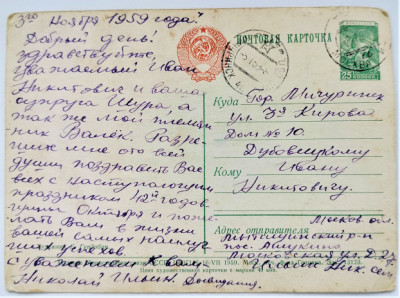 3го Ноября 1959 года.
Добрый день!
здравствуйте,
уважаемый Иван
Никитович и ваша
супруга Шура, а
так же мой племян
ник Валёк. Разре
шите мне ото всей
души поздравить Вас
всех с наступающим
праздником 42й годов
щины Октября и поже
лать Вам в жизни
вашей самых наилуч
ших успехов.
С уважением к Вам
Николай Ильич. Досвидания.
ПОЧТОВАЯ КАРТОЧКА
25 КОПЕЕК
Куда Гор. Мичуринск
ул. Кирова
Дом № 10.
Дубовицкому
Кому Ивану
Никитовичу.
Адрес отправителя Москов обл.
Мытищинский р-н
пос.
Московская ул. Д.
Ник.
1959
Цена художественной карточки с маркой 40 коп.